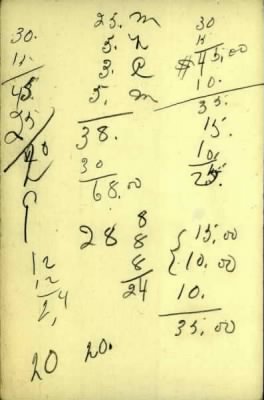 30.
15
45
25
70
9
12
12
2,4
20
25. m
5. h
3. P
5. m
38.
30
68.00
28
8
8
8
24
20.
30
15
$45,00
10.
35.
15.
10.
25.
15,00
10,00
10.
35,00